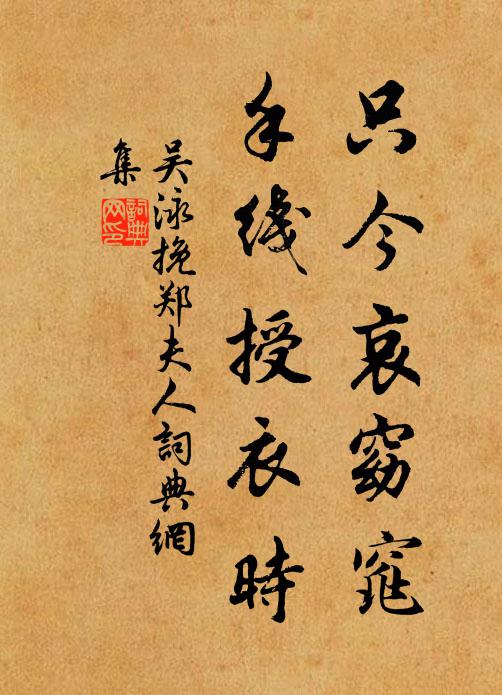 只今哀窈窕
手线授衣時
吴泳挽郑夫人詞典網
集
詞典
网印